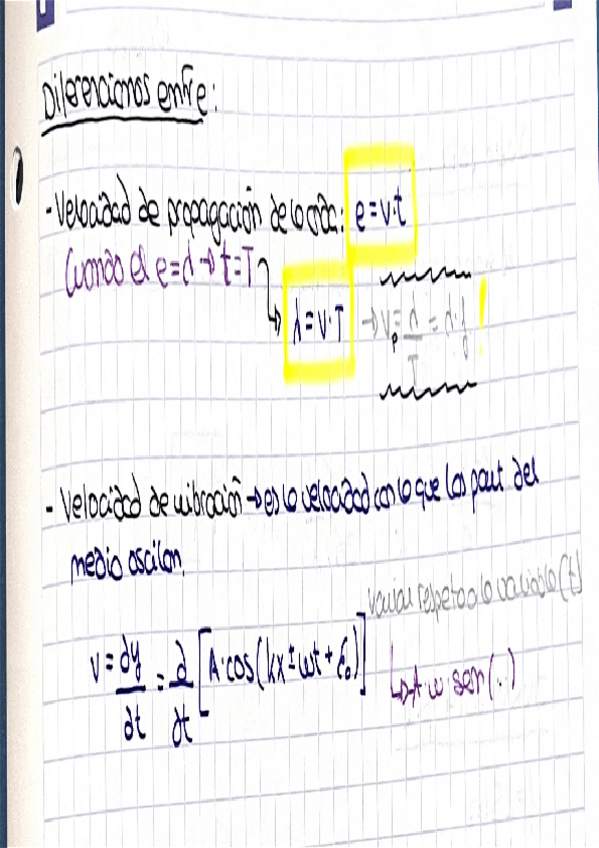 Diferenciamos entre:
- Velocidad de propagación de la onda: e = v·t
Cuando el e = λ → t = T
λ = v·T → vp = λ/T = λ·f !
- Velocidad de vibración → es la velocidad con la que las part del
medio oscilan.
Variar respeto a la variable (t)
v = ∂y/∂t = ∂/∂t [A·cos(kx ± ωt + ξ₀)]
↳ A·ω·sen(..)